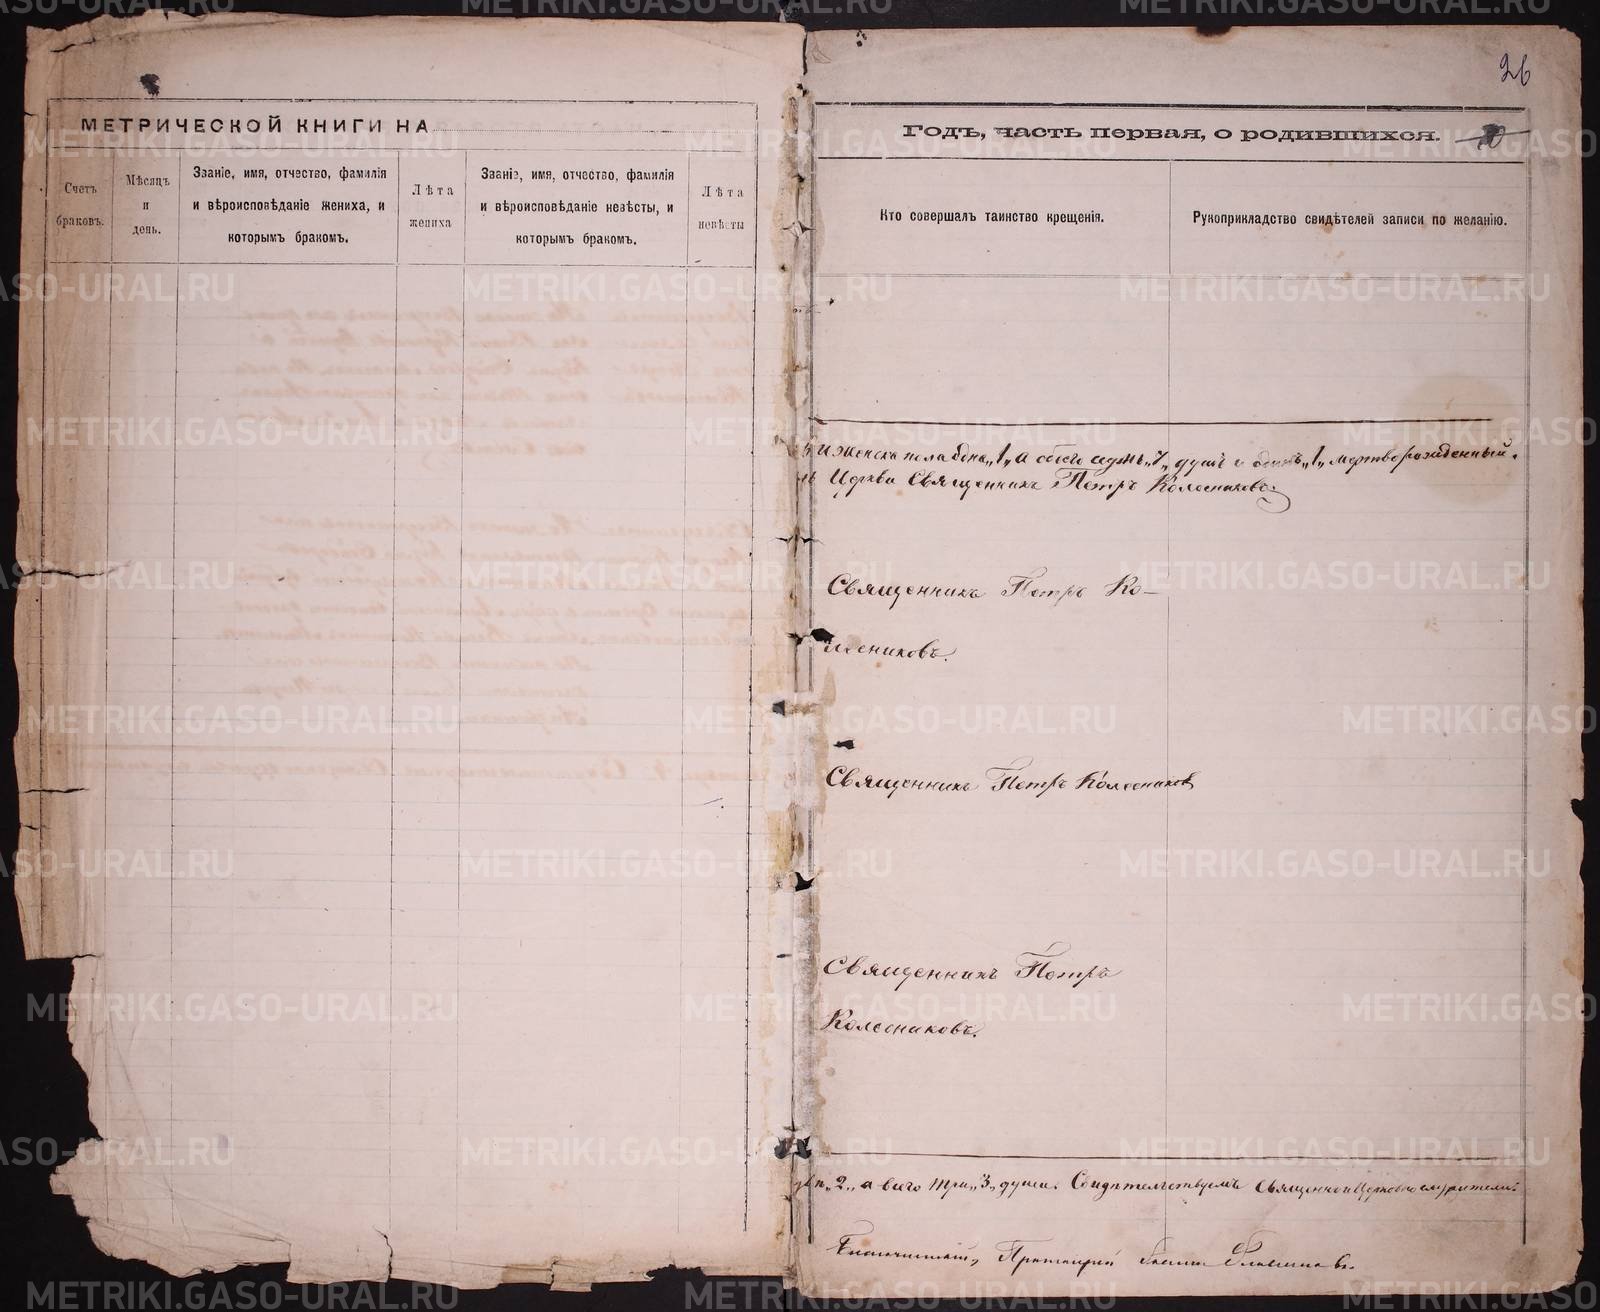 МЕТРИЧЕСКОЙ КНИГИ НА
Счетъ браковъ.
Мѣсяцъ и день.
Званіе, имя, отчество, фамилія и вѣроисповѣданіе жениха, и которымъ бракомъ.
Лѣта жениха
Званіе, имя, отчество, фамилія и вѣроисповѣданіе невѣсты, и которымъ бракомъ.
Лѣта невѣсты
26
Годъ, часть первая, о родившихся.
Кто совершалъ таинство крещенія.
Рукоприкладство свидѣтелей записи по желанію.
и женска пола одна „1„ а обоего седмь „7„ душъ и одинъ „1„ мертворожденный.
Церкви Священникъ Петръ Колесниковъ.
Священникъ Петръ Ко-
лесниковъ.
Священникъ Петръ Колесников
Священникъ Петръ
Колесниковъ.
„2„ а всего три „3„ души. Свидѣтельствуемъ Священноцерковнослужители:
Протоіерей
METRIKI.GASO-URAL.RU